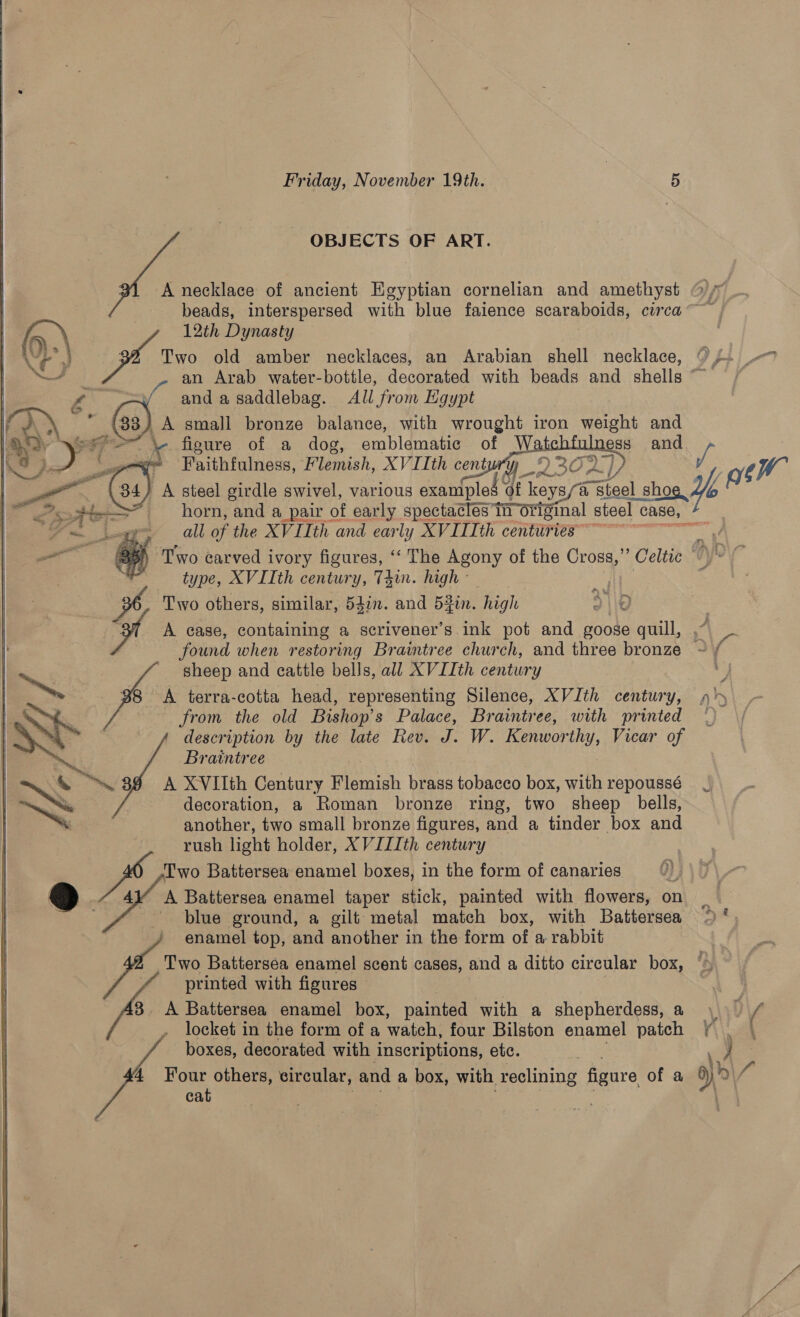 Friday, November 19th. 5
OBJECTS OF ART.
31 A necklace of ancient Egyptian cornelian and amethyst
beads, interspersed with blue faience scaraboids, circa
12th Dynasty
32 Two old amber necklaces, an Arabian shell necklace,
an Arab water-bottle, decorated with beads and shells
and a saddlebag. All from Egypt
33 A small bronze balance, with wrought iron weight and
figure of a dog, emblematic of Watchfulness and
Faithfulness, Flemish, XVIIth century
34 A steel girdle swivel, various examples of keys, a steel shoe
horn, and a pair of early spectacles in original steel case,
all of the XVIIth and early XVIIIth centuries
35 Two carved ivory figures, “The Agony of the Cross,” Celtic
type, XVIIth century, 7½in. high
36 Two others, similar, 5½in. and 5¾in. high
37 A case, containing a scrivener's ink pot and goose quill,
found when restoring Braintree church, and three bronze
sheep and cattle bells, all XVIIth century
38 A terra-cotta head, representing Silence, XVIth century,
from the old Bishop's Palace, Braintree, with printed
description by the late Rev. J. W. Kenworthy, Vicar of
Braintree
39 A XVIIth Century Flemish brass tobacco box, with repoussé
decoration, a Roman bronze ring, two sheep bells,
another, two small bronze figures, and a tinder box and
rush light holder, XVIIIth century
40 Two Battersea enamel boxes, in the form of canaries
41 A Battersea enamel taper stick, painted with flowers, on
blue ground, a gilt metal match box, with Battersea
enamel top, and another in the form of a rabbit
42 Two Battersea enamel scent cases, and a ditto circular box,
printed with figures
43 A Battersea enamel box, painted with a shepherdess, a
locket in the form of a watch, four Bilston enamel patch
boxes, decorated with inscriptions, etc.
44 Four others, circular, and a box, with reclining figure of a
cat